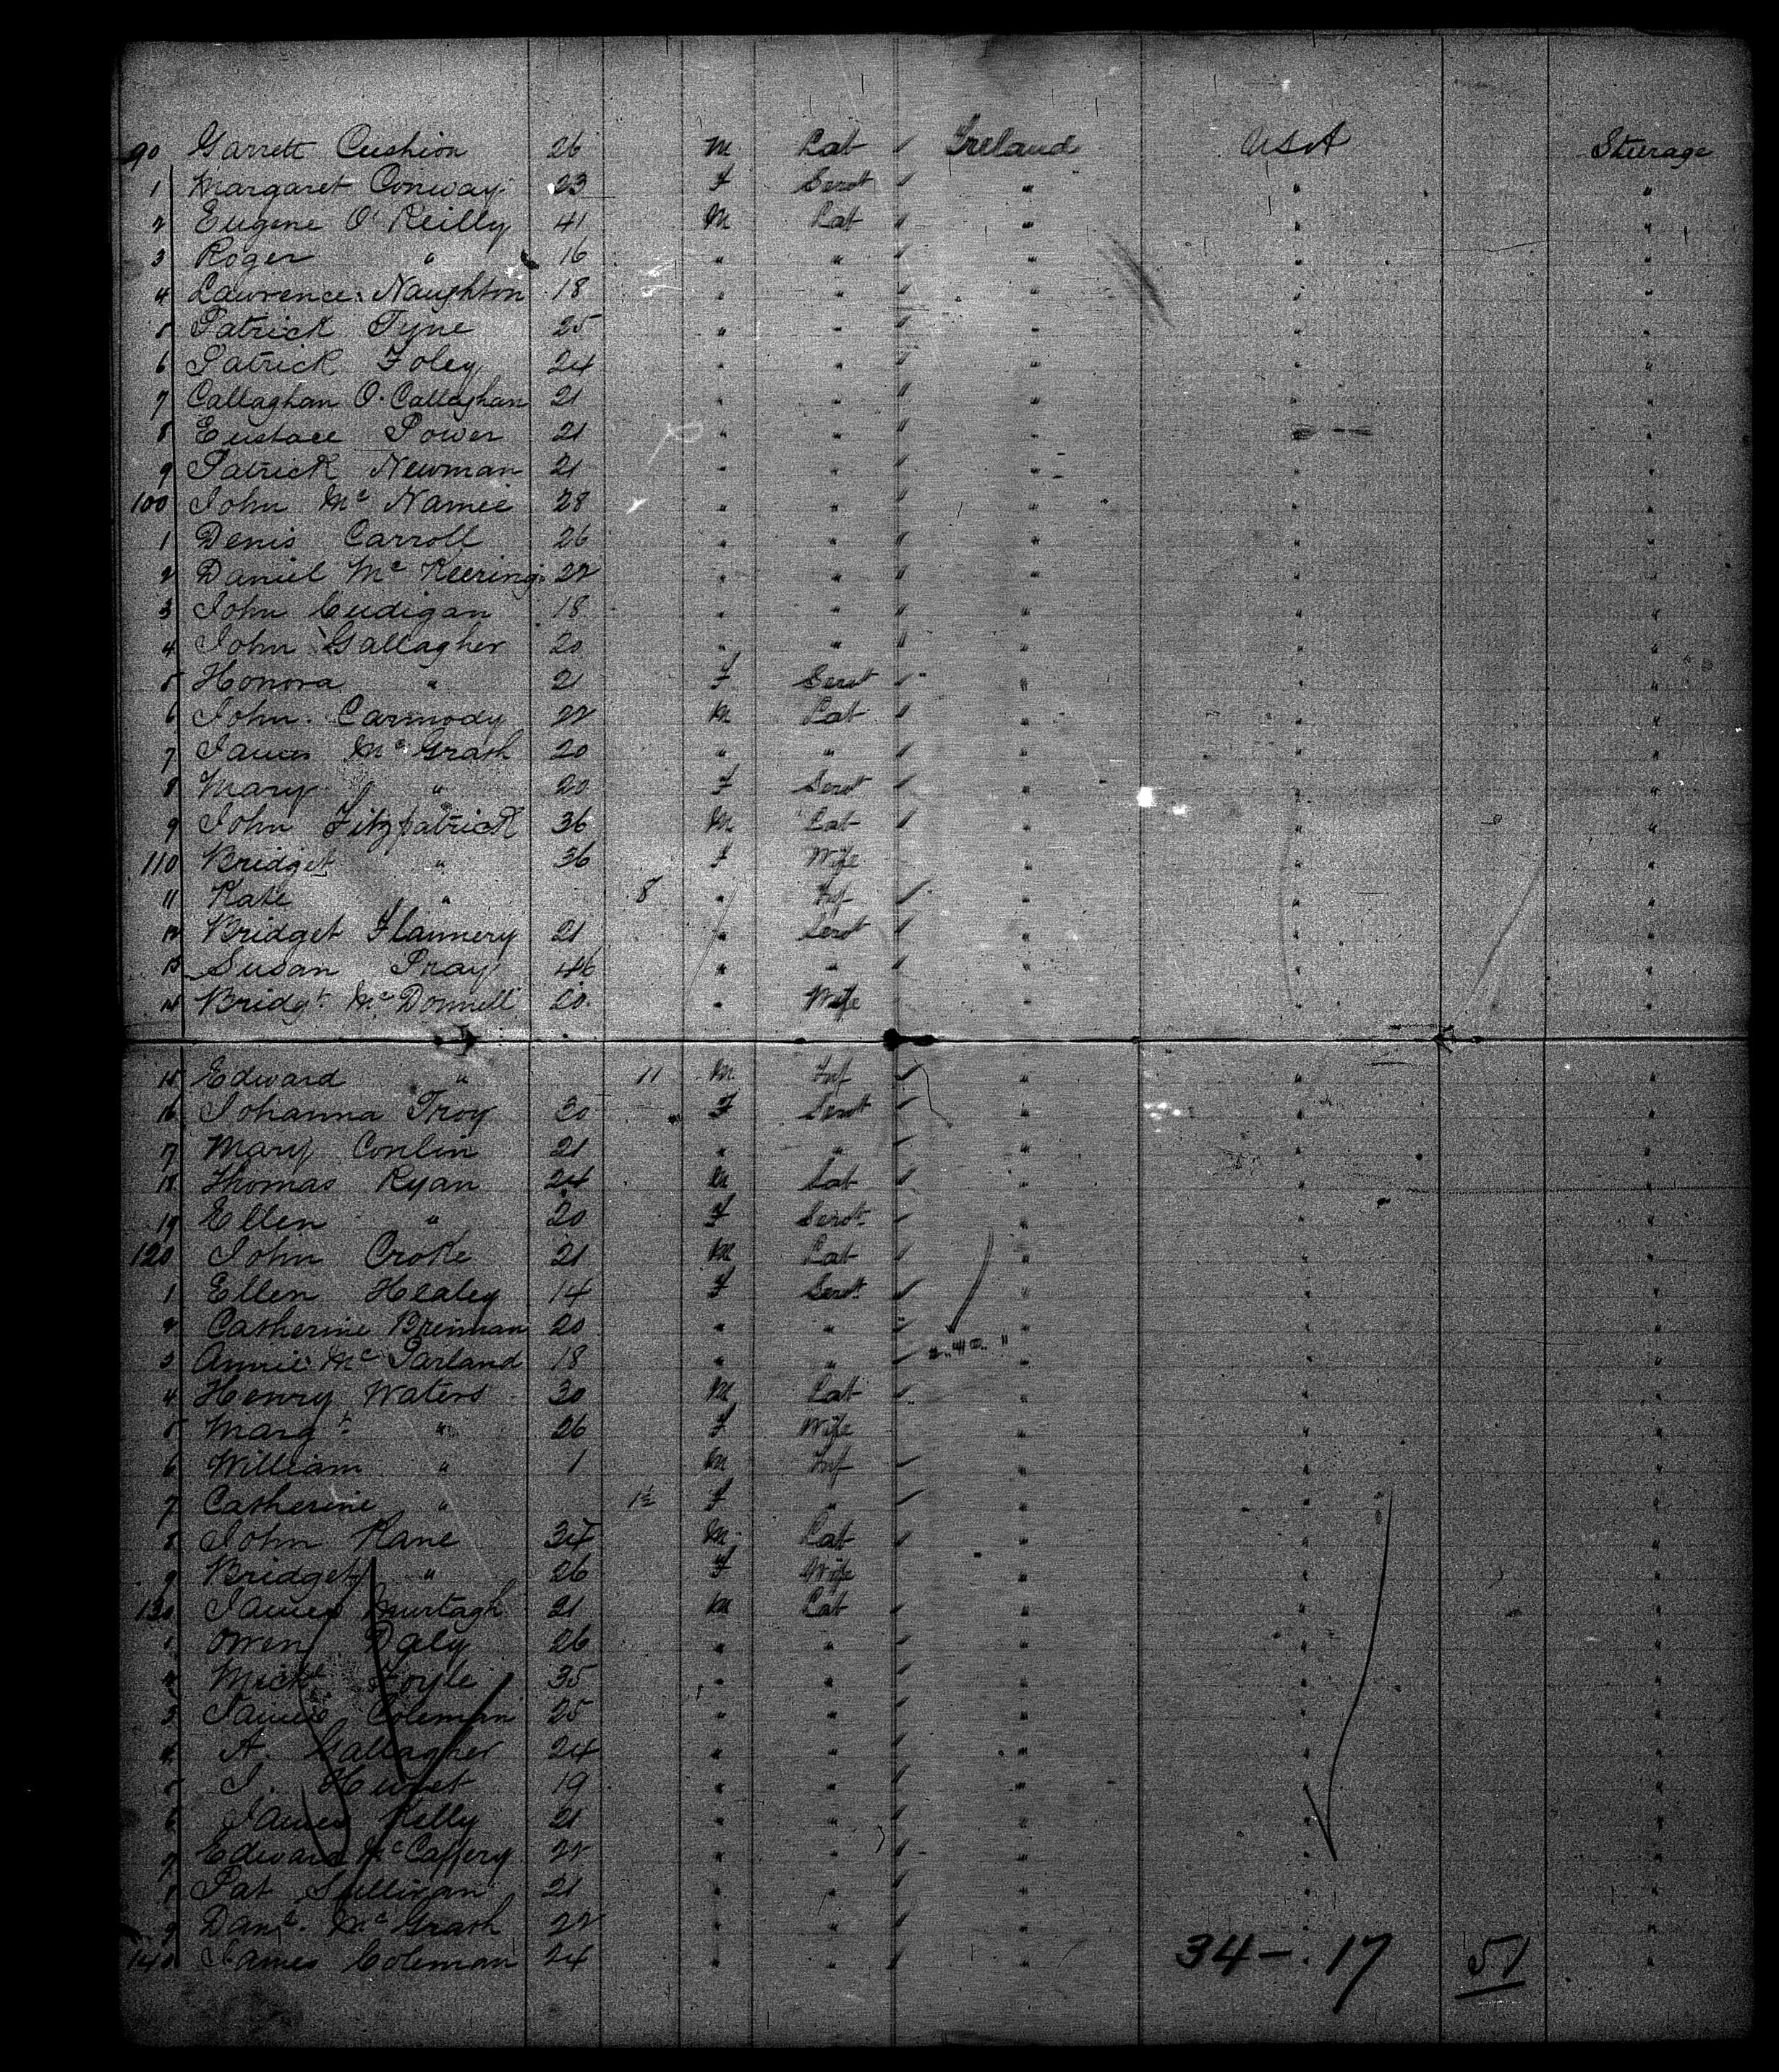 90 Garrett Cushion 26 M Lab " Ireland USA Steerage
1 Margaret Conway 23 F Servt " " " "
2 Eugene O'Reilly 41 M Lab " " " "
3 Roger " 16 " " " " " "
4 Lawrence Naughton 18 " " " " " "
5 Patrick Tyne 25 " " " " " "
6 Patrick Foley 24 " " " " " "
7 Callaghan O. Callaghan 21 " " " " " "
8 Eustace Power 21 " " " " " "
9 Patrick Newman 21 " " " " " "
100 John Mc Namee 28 " " " " " "
1 Denis Carroll 26 " " " " " "
2 Daniel Mc Keering 22 " " " " " "
3 John Cudigan 18 " " " " " "
4 John Gallagher 20 " " " " " "
5 Honora " 21 F Servt " " " "
6 John Carmody 22 M Lab " " " "
7 James McGrath 20 " " " " " "
8 Mary " 20 F Servt " " " "
9 John Fitzpatrick 36 M Lab " " " "
110 Bridget " 36 F Wife " " "
11 Kate " 8 " Inf " " "
12 Bridget Flannery 21 " Servt " " " "
13 Susan Pray 46 " " " " " "
14 Bridgt McDonnell 20 " Wife " " "
15 Edward " 11 M Inf " " "
16 Johanna Troy 30 F Servt " " "
17 Mary Conlin 21 " " " " "
18 Thomas Ryan 24 M Lab " " " "
19 Ellen " 20 F Servt " " "
120 John Croke 21 M Lab " " " "
1 Ellen Healey 14 F Servt " " "
2 Catherine Brennan 20 " " " " " "
3 Annie McParland 18 " " " " "
4 Henry Waters 30 M Lab " " " "
5 Margt " 26 F Wife " " "
6 William " 1 M Inf " " "
7 Catherine " 1½ F " " " "
8 John Kane 34 M Lab " " " "
9 Bridget " 26 F Wife " " "
130 James Murtagh 21 M Lab " " " "
1 Owen Daly 26 " " " " " "
2 Michl Foyle 35 " " " " " "
3 James Coleman 25 " " " " " "
4 A. Gallagher 24 " " " " " "
5 J. 19 " " " " " "
6 James Kelly 21 " " " " " "
7 Edward McCaffery 22 " " " " " "
8 Pat Sullivan 21 " " " " " "
9 Danl. McGrath 22 " " " " " "
140 James Coleman 24 " " " " "
34 - 17 51